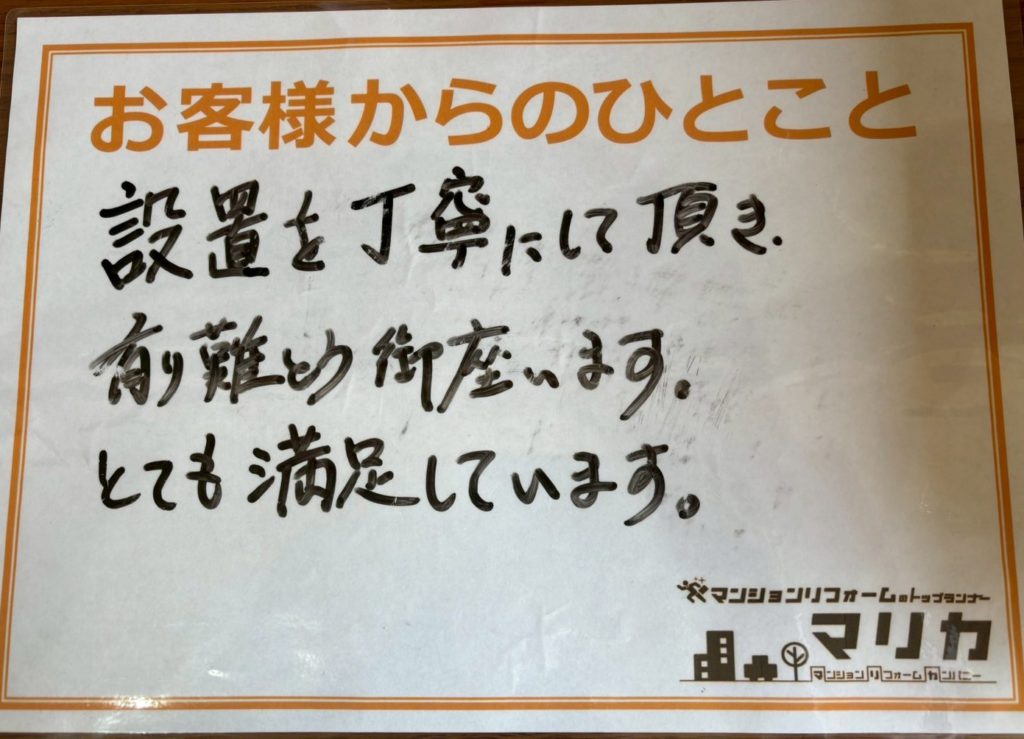 お客様からのひとこと
設置を丁寧にして頂き、
有り難とう御座います。
とても満足しています。
マンションリフォームのトップランナー
マリカ
マンションリフォームカンパニー